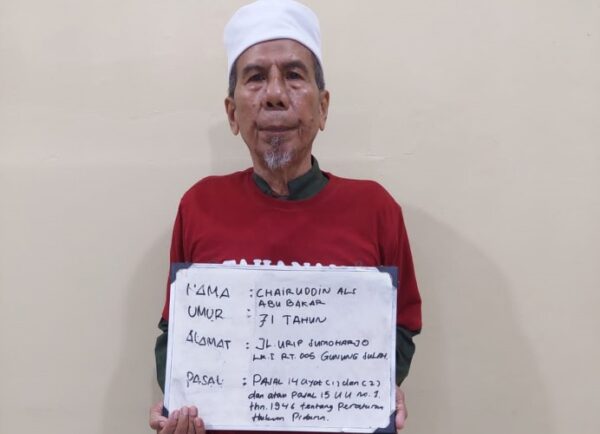 TAHANAN
NAMA : CHAIRUDDIN ALS
ABU BAKAR
UMUR : 71 TAHUN
ALAMAT : JL. URIP SUMOHARJO
LK.I RT.005 GUNUNG SULAH
PASAL : PASAL 14 ayat (1) dan (2)
dan atau PASAL 15 UU no. 1
thn. 1946 tentang Peraturan
Hukum Pidana.